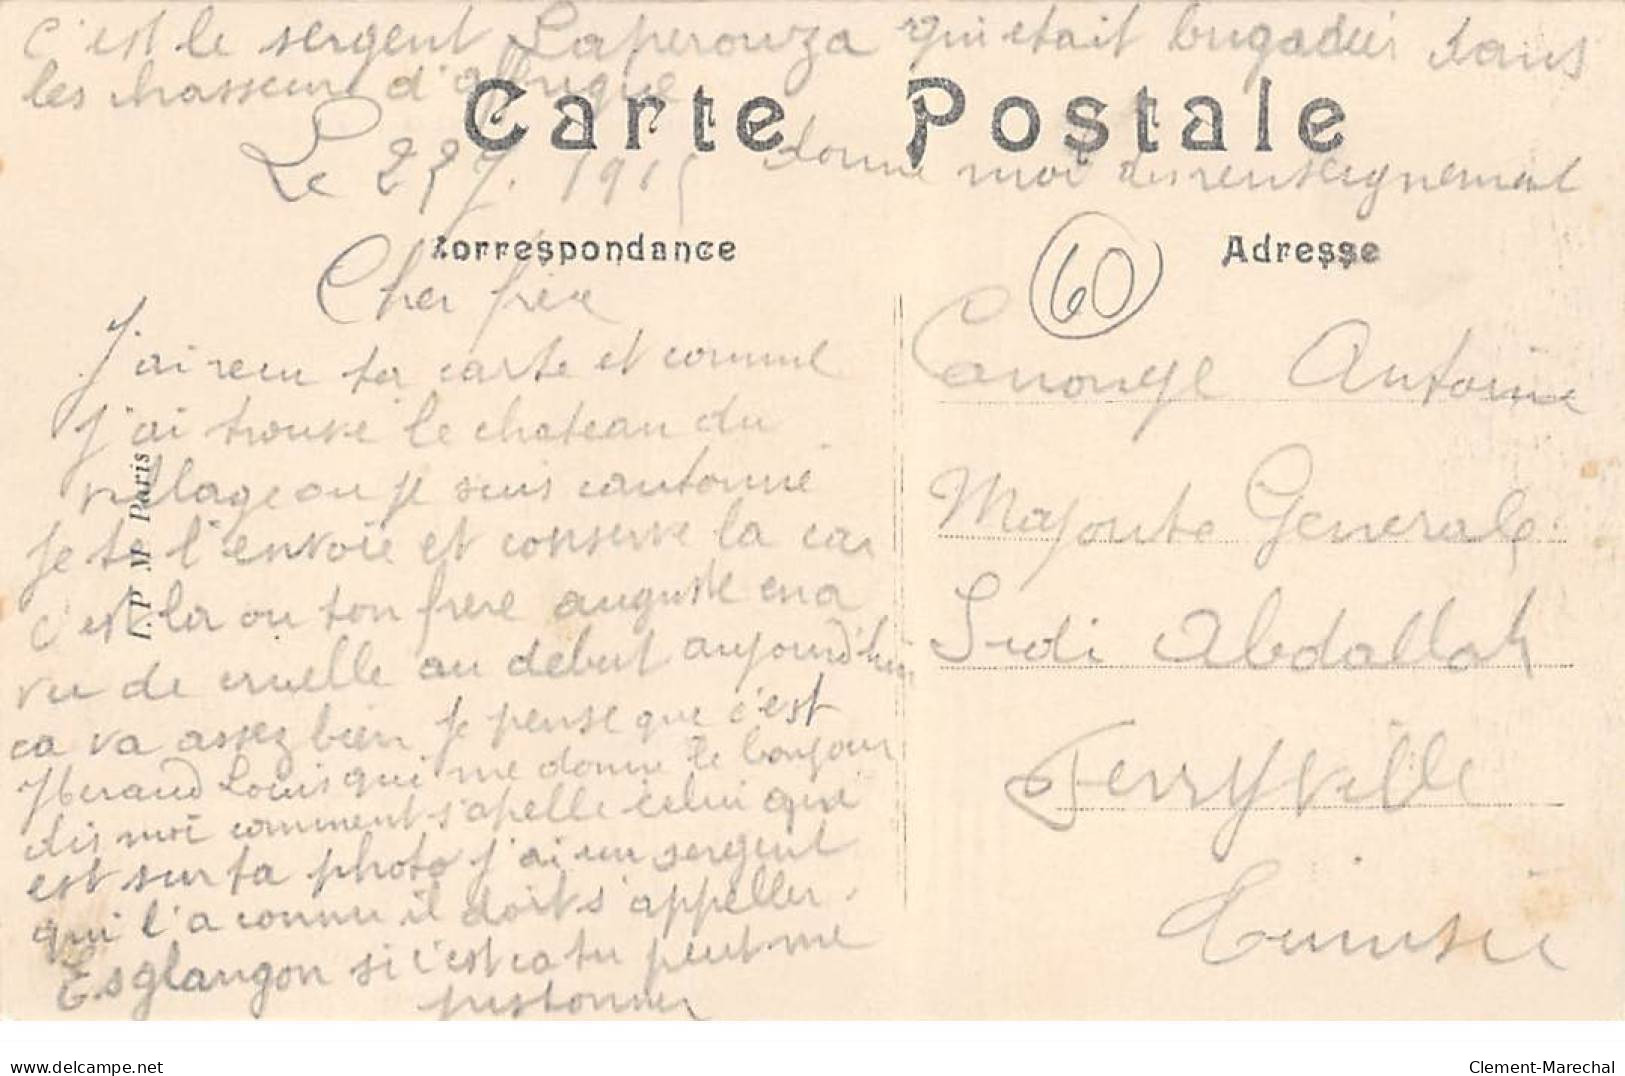 c'est le sergent Laperouza qui etait brigadier dans
les chasseur d'affrique
Carte Postale
Le 1915 donne moi des renseignement
Correspondance
Adresse
60
Cher frere
J'ai recu ta carte et comme
j'ai trouve le chateau du
village ou je suis cantonné
je te l'envoie et conserve la car
c'est la ou ton frere auguste en a
vu de cruelle au debut aujourd'hui
ca va assez bien je pense que c'est
Heraud Louis qui me donne le bonjour
dis moi comment s'apelle celui que
est sur ta photo j'ai un sergent
qui l'a connu il doit s'appeller
Esglangon si c'est ca tu peut me
pistonner
I. P. M. Paris
Canonge Antoine
Majorite Generale
Sidi Abdallah
Ferryville
Tunisie
delcampe.net
Clement-Marechal